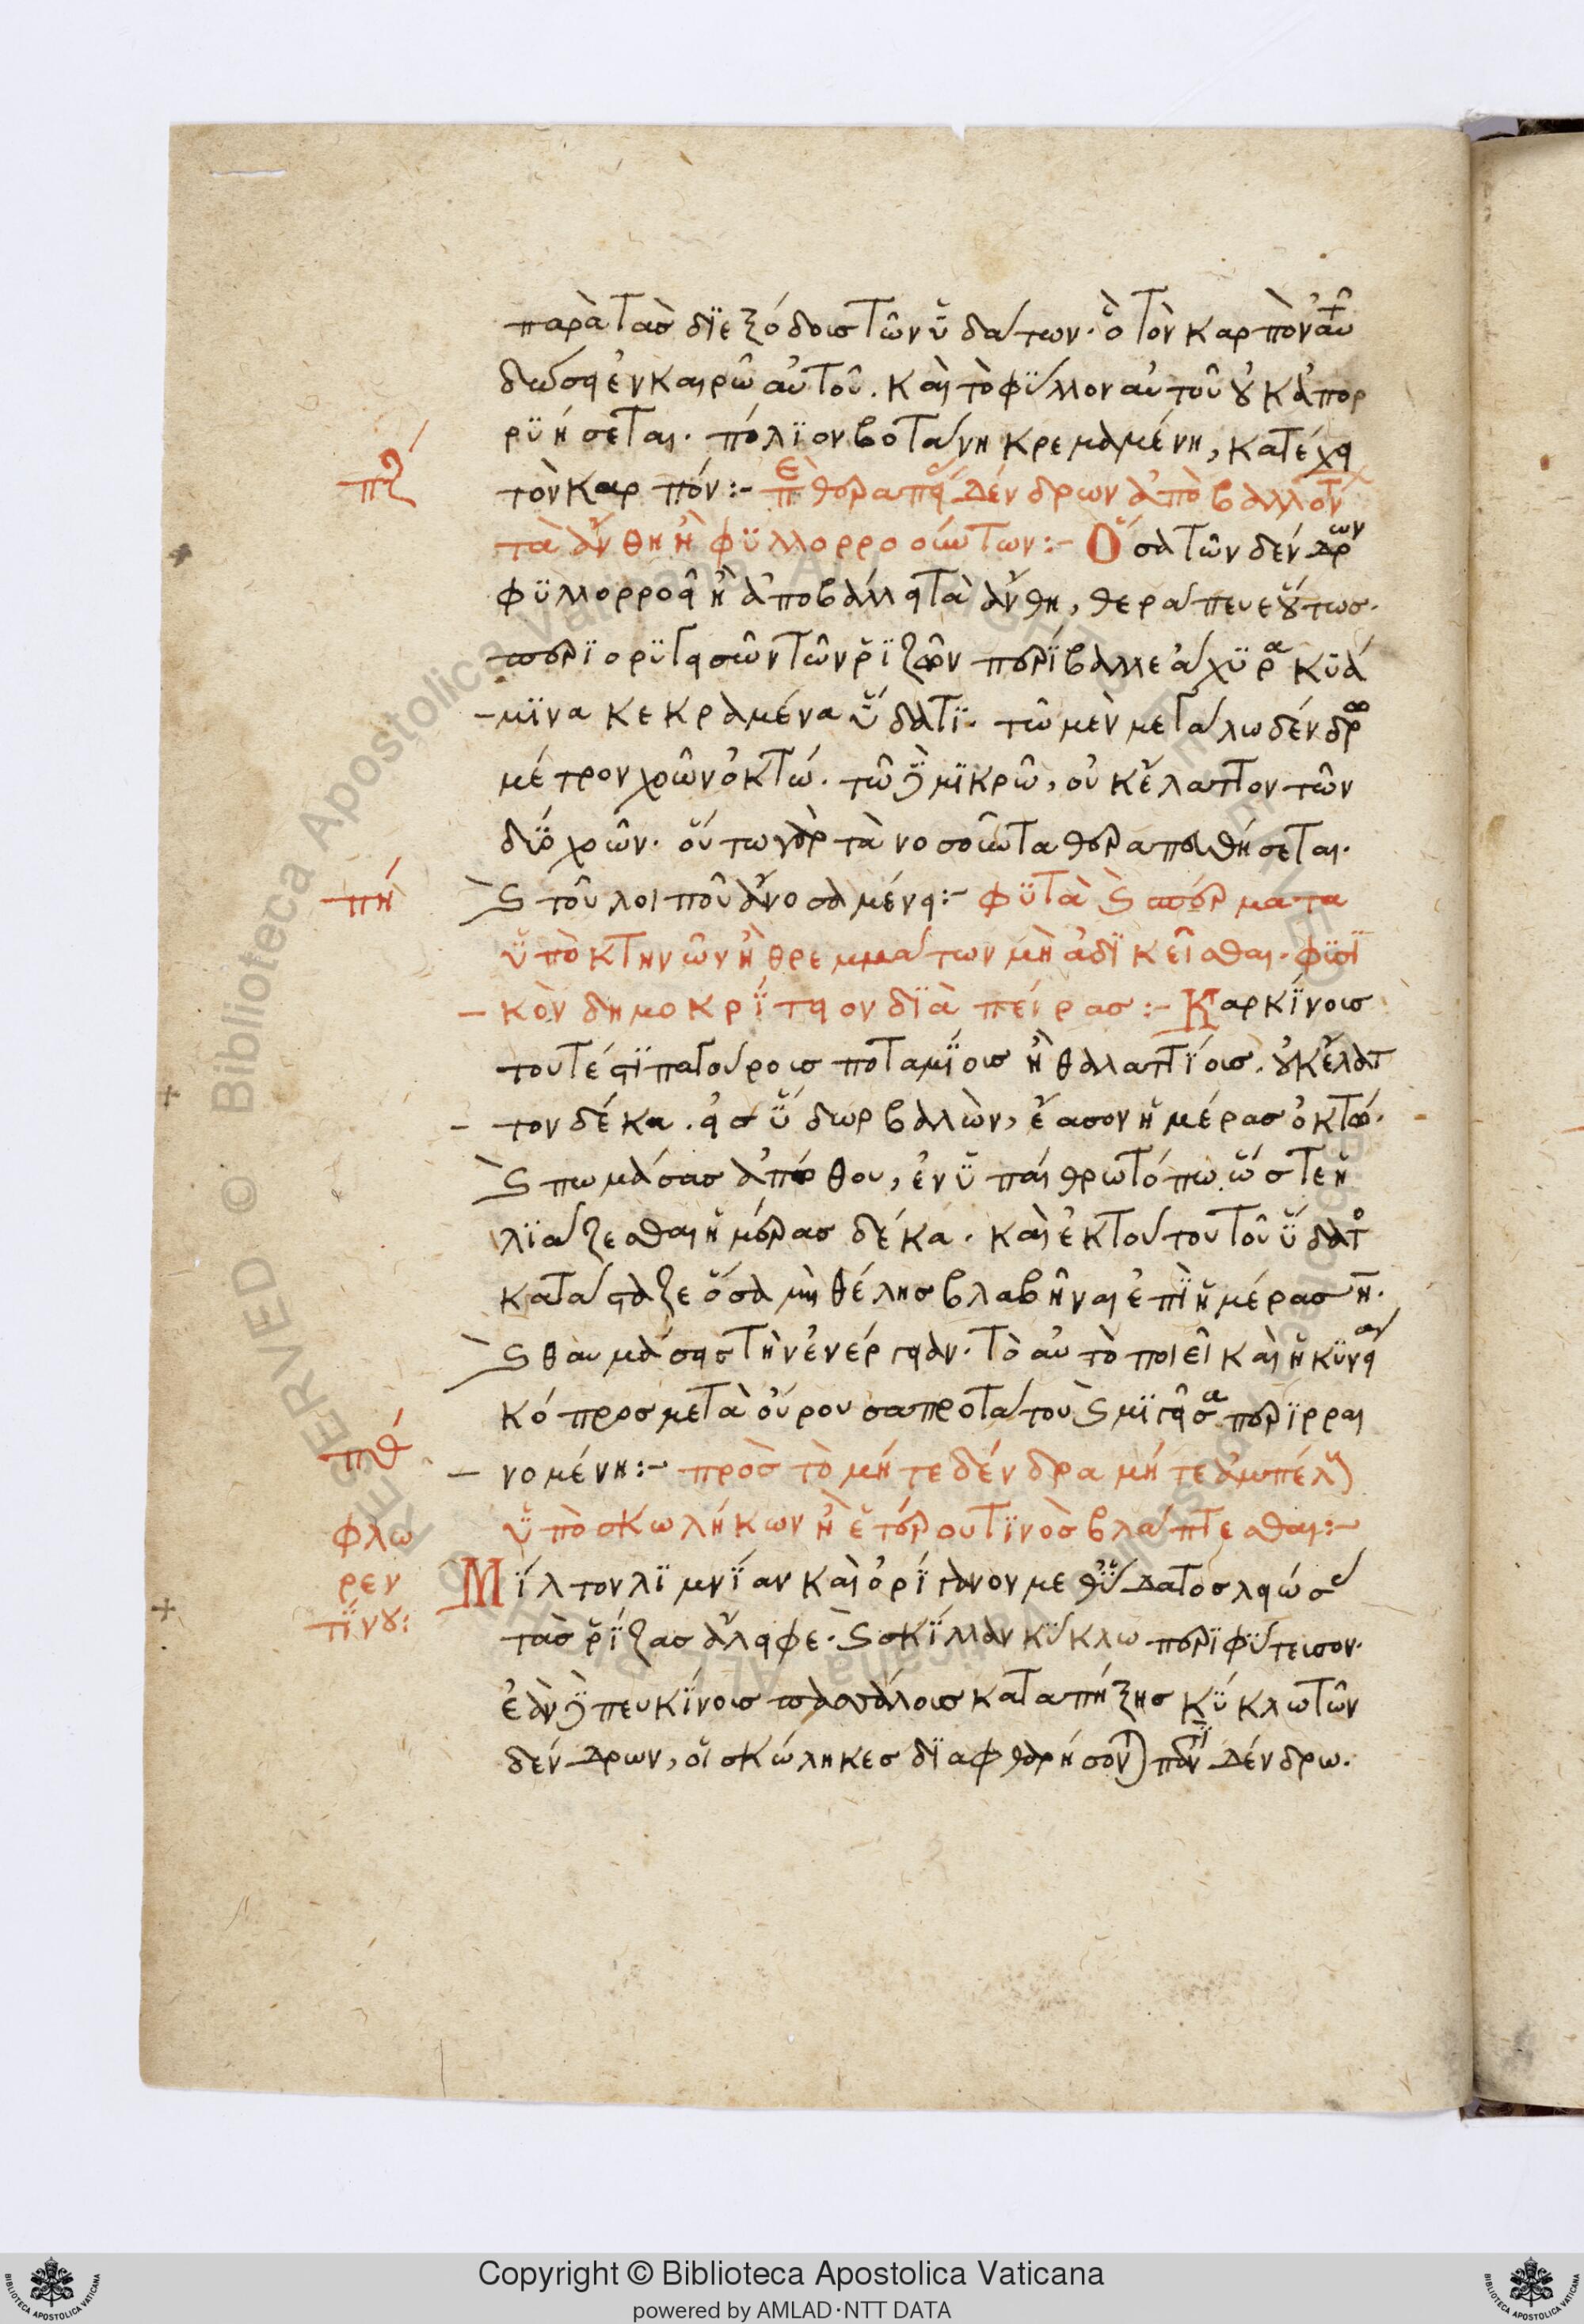 παρὰ τὰσ διεξόδουσ τῶν ὑδάτων· ὃ τὸν καρπὸν αὐτοῦ
δώσει ἐν καιρῶ αὐτοῦ. καὶ τὸ φύλλον αὐτοῦ οὐκ ἀπορ
ρϋήσεται. πόλϊον βοτάνη κρεμαμένη, κατέχει
πζ
τὸν καρπόν:- θεραπεία δένδρων ἀποβαλλόντων
τὰ ἄνθη ἢ φϋλλορροούντων:- Ὅσα τῶν δένδρων
φϋλλορροεῖ ἢ ἀποβάλλει τὰ ἄνθη, θεράπευε οὕτωσ.
περϊορϋττ τῶν ῥϊζῶν περϊβαλλε ἄχϋρα κϋά
-μϊνα κεκραμένα ὕδατϊ. τῶ μὲν μεγάλω δένδρω
μέτρον χοῶν ὀκτώ. τῶ δὲ μϊκρῶ, οὐκ ἔλαττον τῶν
δύο χοῶν. οὕτω γὰρ τὰ νοσοῦντα θεραπευθήσεται.
πή
καὶ τοῦ λοιποῦ ἄνοσα μένει:- φϋτὰ καὶ σπέρματα
ὑπὸ κτηνῶν ἢ θρεμμάτων μὴ ἀδϊκεῖσθαι. φϋσϊ
-κὸν δημοκρίτειον δϊὰ πείρασ:- Καρκϊνοισ
τουτέστϊ παγούροισ ποταμϊοισ ἢ θαλαττϊοισ. οὐκ ἔλατ
- τον δέκα. εἰσ ὕδωρ βαλὼν, ἔασον ἡμέρασ ὀκτώ.
καὶ πωμάσασ ἀπόθου, ἐν ὑπαίθρω τόπω ὥστε ἡ
λϊάζεσθαι ἡμέρασ δέκα. καὶ ἐκ τούτου τοῦ ὕδατος
κατάσταζε ὅσα μὴ θέλησ βλαβῆναι ἐπὶ ἡμέρασ η.
καὶ θαυμάσεισ τὴν ἐνέργειαν. Τὸ αὐτὸ ποιεῖ καὶ ἡ κϋνεία
κόπροσ μετὰ οὔρου σαπροτάτου καὶ μϊγεῖσα περϊρραι
πθ
- νομένη:- πρὸσ τὸ μήτε δένδρα μήτε ἀμπέλουσ
ὑπὸ σκωλήκων ἢ ἑτέρου τϊνὸσ βλάπτεσθαι:-
φλω
ρεν
τίνου:
Μίλτον λϊμνίαν καὶ ὀρίγανον μεθ' ὕδατοσ λειώσας
τὰσ ῥίζασ ἄλειφε. καὶ σκίλλαν κύκλω περϊφύτευσον.
ἐὰν δὲ πευκίνοισ πασσάλοισ καταπήξησ κύκλω τῶν
δένδρων, οἱ σκώληκεσ δϊαφθαρήσονται δένδρω.
Copyright © Biblioteca Apostolica Vaticana
powered by AMLAD·NTT DATA